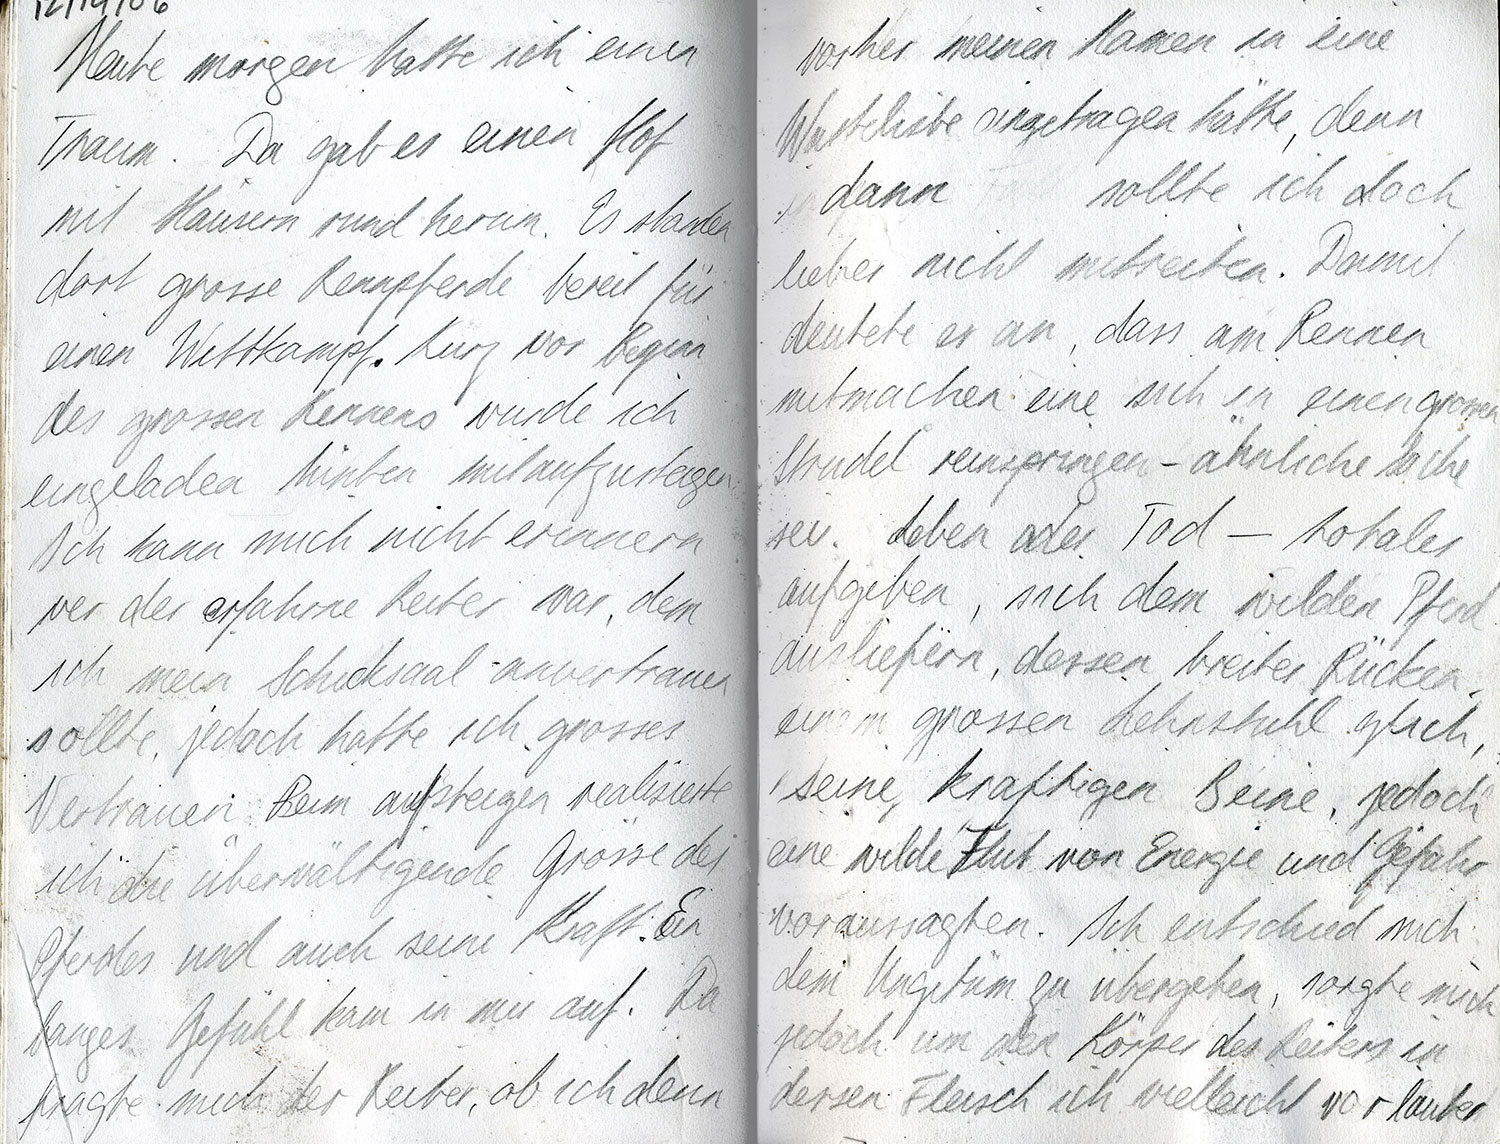 12/14/06
Heute morgen hatte ich einen
Traum. Da gab es einen Hof
mit Häusern rund herum. Es standen
dort grosse Rennpferde bereit für
einen Wettkampf. Kurz vor Beginn
des grossen Rennens wurde ich
eingeladen hinten mitaufzusteigen.
Ich kann mich nicht erinnern
wer der erfahrne Reiter war, dem
ich mein Schicksaal anvertrauen
sollte, jedoch hatte ich grosses
Vertrauen. Beim aufsteigen realisierte
ich die überwältigende Grösse des
Pferdes und auch seine Kraft. Ein
banges Gefühl kam in mir auf. Da
fragte mich der Reiter, ob ich denn
vorher meinen Namen in eine
Warteliste eingetragen hätte, denn
dann sollte ich doch
lieber nicht mitreiten. Damit
deutete er an, dass am Rennen
mitmachen eine sich in einen grossen
Strudel reinspringen-ähnliche Sache
sei. Leben oder Tod — totales
aufgeben, sich dem wilden Pferd
ausliefern, dessen breiter Rücken
einem grossen Lehnstuhl glich,
seine kräftigen Beine, jedoch
eine wilde Flut von Energie und Gefahr
voraussagten. Ich entschied mich
dem Ungetüm zu übergeben, sorgte mich
jedoch um den Körper des Reiters in
dessen Fleisch ich vielleicht vor lauter